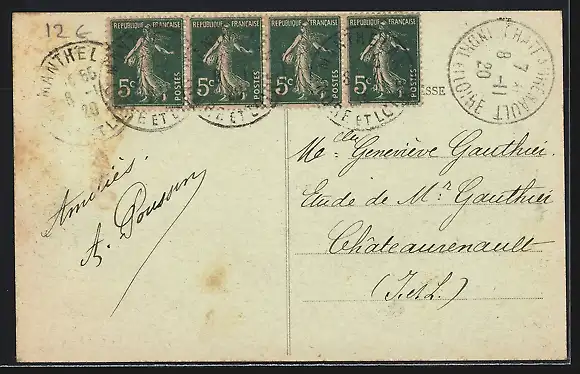 12 €
REPUBLIQUE FRANÇAISE
5c POSTES
REPUBLIQUE FRANÇAISE
5c POSTES
REPUBLIQUE FRANÇAISE
5c POSTES
REPUBLIQUE FRANÇAISE
5c POSTES
MONTHEL
8 -11
20
ET LOIRE
7
8 -11
20
INDRE ET LOIRE
ESSE
Amitiés.
A. Poussin
Mlle Geneviève Gauthier.
Etude de Mr Gauthier
Châteaurenault
(I. et L.)